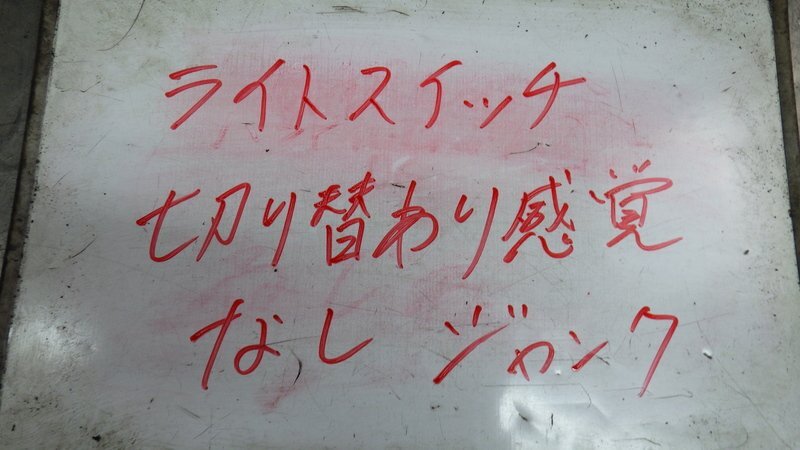 ライトスイッチ
切り替わり感覚
なし ジャンク